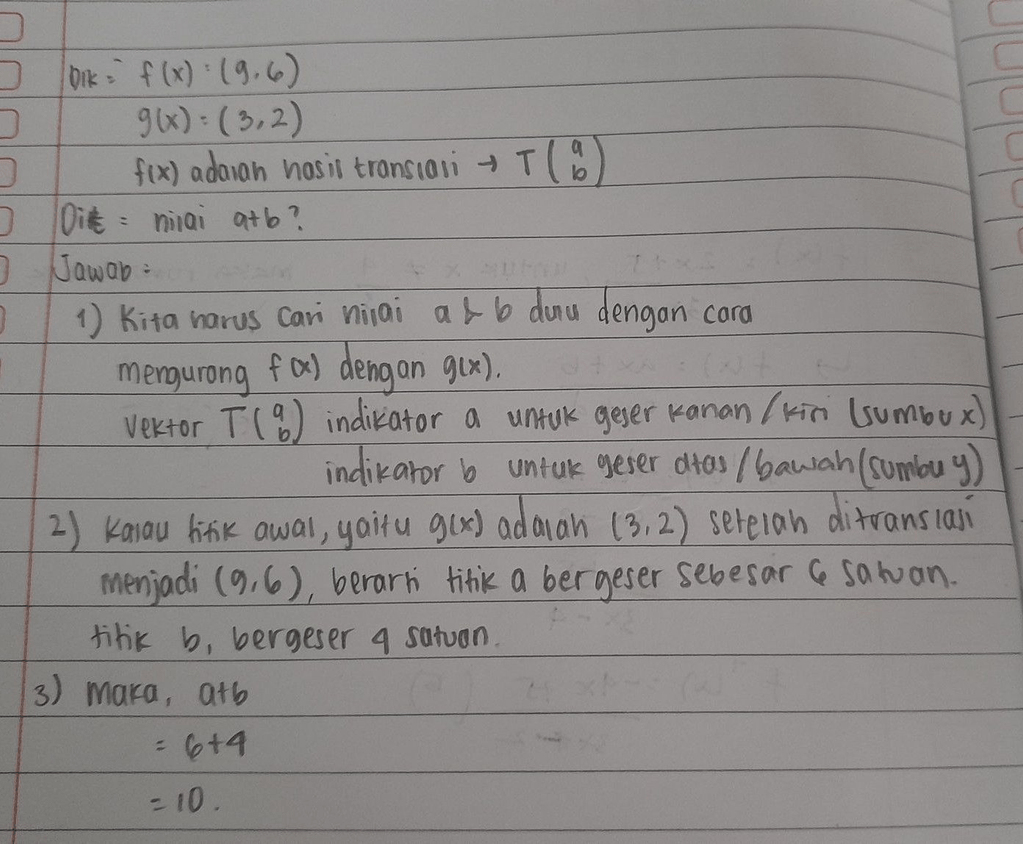 Dik = f(x) : (9,6)
g(x) : (3,2)
f(x) adalah hasil translasi → T(a b)
Dit = nilai a+b?
Jawab :
1) Kita harus cari nilai a & b dulu dengan cara
mengurang f(x) dengan g(x).
Vektor T(a b) indikator a untuk geser kanan/kiri (sumbu x)
indikator b untuk geser atas/bawah (sumbu y)
2) Kalau titik awal, yaitu g(x) adalah (3,2) setelah ditranslasi
menjadi (9,6), berarti titik a bergeser sebesar 6 satuan.
titik b, bergeser 4 satuan.
3) maka, a+b
= 6+4
= 10.